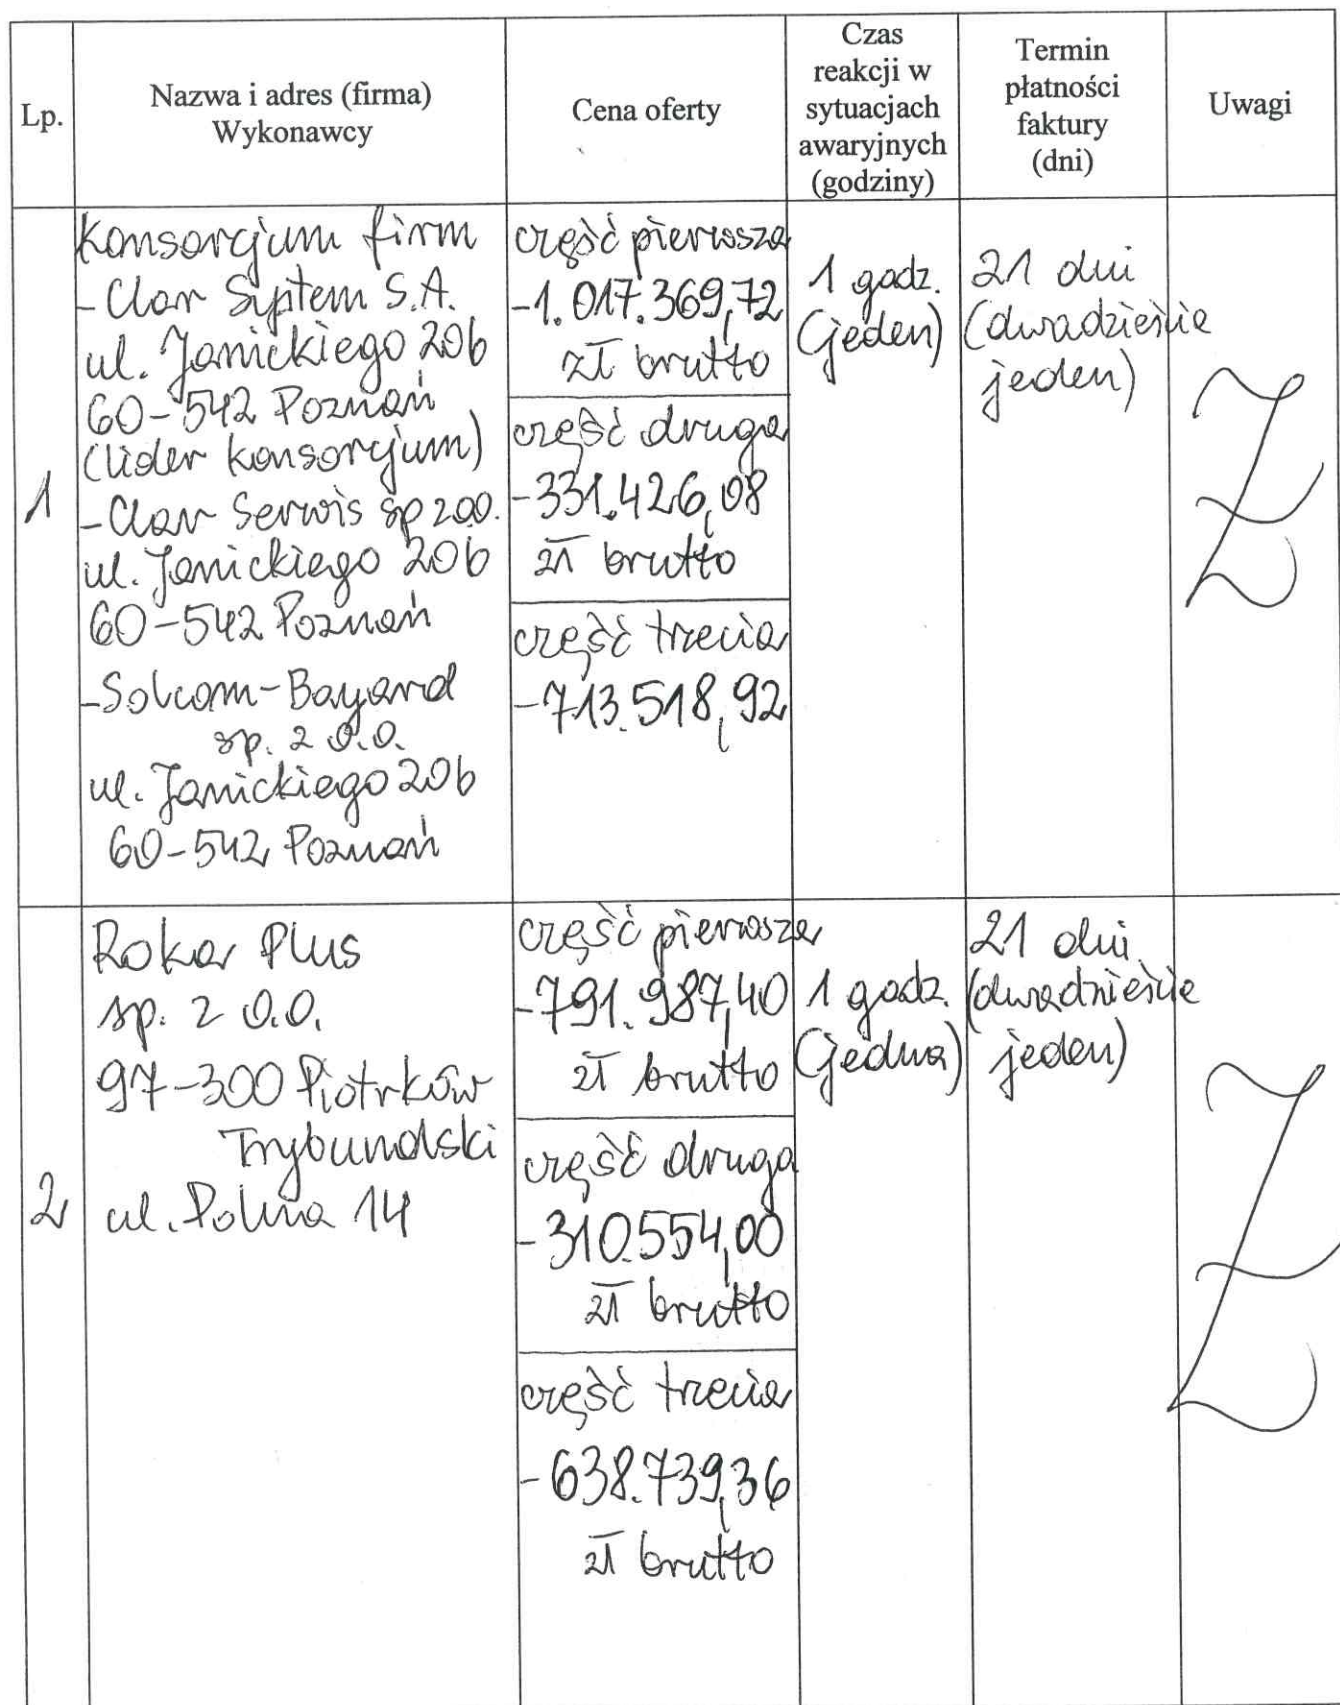 Lp.
Nazwa i adres (firma)
Wykonawcy
Cena oferty
Czas
reakcji w
sytuacjach
awaryjnych
(godziny)
Termin
płatności
faktury
(dni)
Uwagi
1
Konsorcjum firm
- Clar System S.A.
ul. Janickiego 20b
60-542 Poznań
(lider konsorcjum)
- Clar Serwis sp z o.o.
ul. Janickiego 20b
60-542 Poznań
- Solcom-Bayard
sp. z o.o.
ul. Janickiego 20b
60-542 Poznań
część pierwsza
-1.017.369,72
zł brutto
część druga
-331.426,08
zł brutto
część trzecia
-713.518,92
1 godz.
(jeden)
21 dni
(dwadzieścia
jeden)
2
Roka Plus
sp. z o.o.
97-300 Piotrków
Trybunalski
ul. Polna 14
część pierwsza
-791.987,40
zł brutto
część druga
-310.554,00
zł brutto
część trzecia
-638.739,36
zł brutto
1 godz.
(jedna)
21 dni
(dwadzieście
jeden)